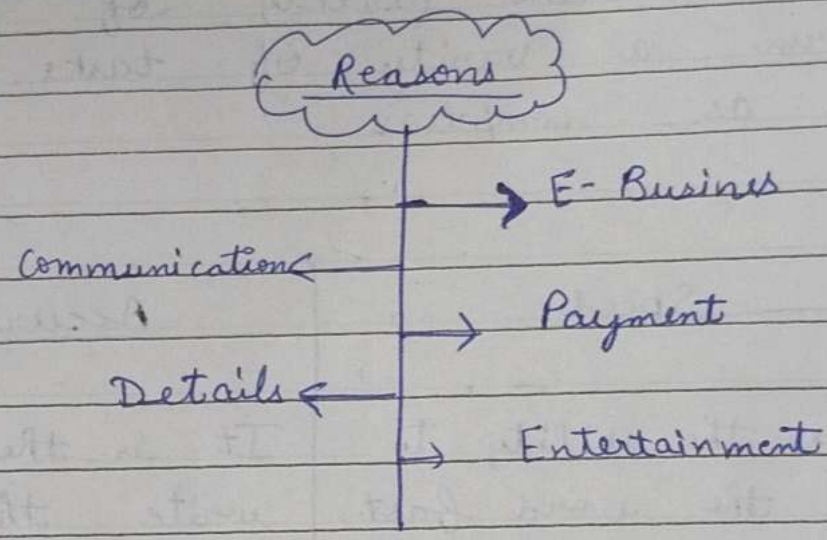 Reasons
E- Busines
Communication
Payment
Details
Entertainment